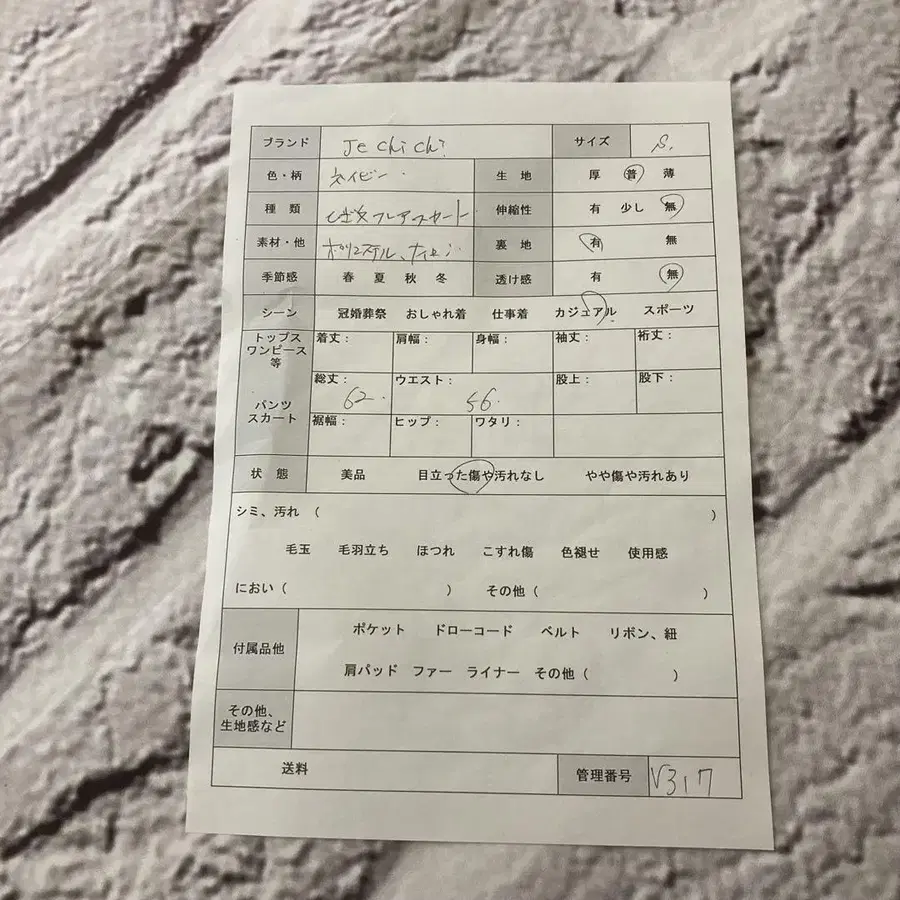 ブランド Je chi chi サイズ S.
色・柄 ネイビー 生地 厚 普 薄
種類 ひざ丈フレアスカート 伸縮性 有 少し 無
素材・他 ポリエステル、ナイロン 裏地 有 無
季節感 春 夏 秋 冬 透け感 有 無
シーン 冠婚葬祭 おしゃれ着 仕事着 カジュアル スポーツ
トップス
ワンピース
等
着丈： 肩幅： 身幅： 袖丈： 裄丈：
パンツ
スカート
総丈： 62 ウエスト： 56 股上： 股下：
裾幅： ヒップ： ワタリ：
状態 美品 目立った傷や汚れなし やや傷や汚れあり
シミ、汚れ （ ）
毛玉 毛羽立ち ほつれ こすれ傷 色褪せ 使用感
におい（ ） その他（ ）
付属品他 ポケット ドローコード ベルト リボン、紐
肩パッド ファー ライナー その他（ ）
その他、
生地感など
送料 管理番号 V317